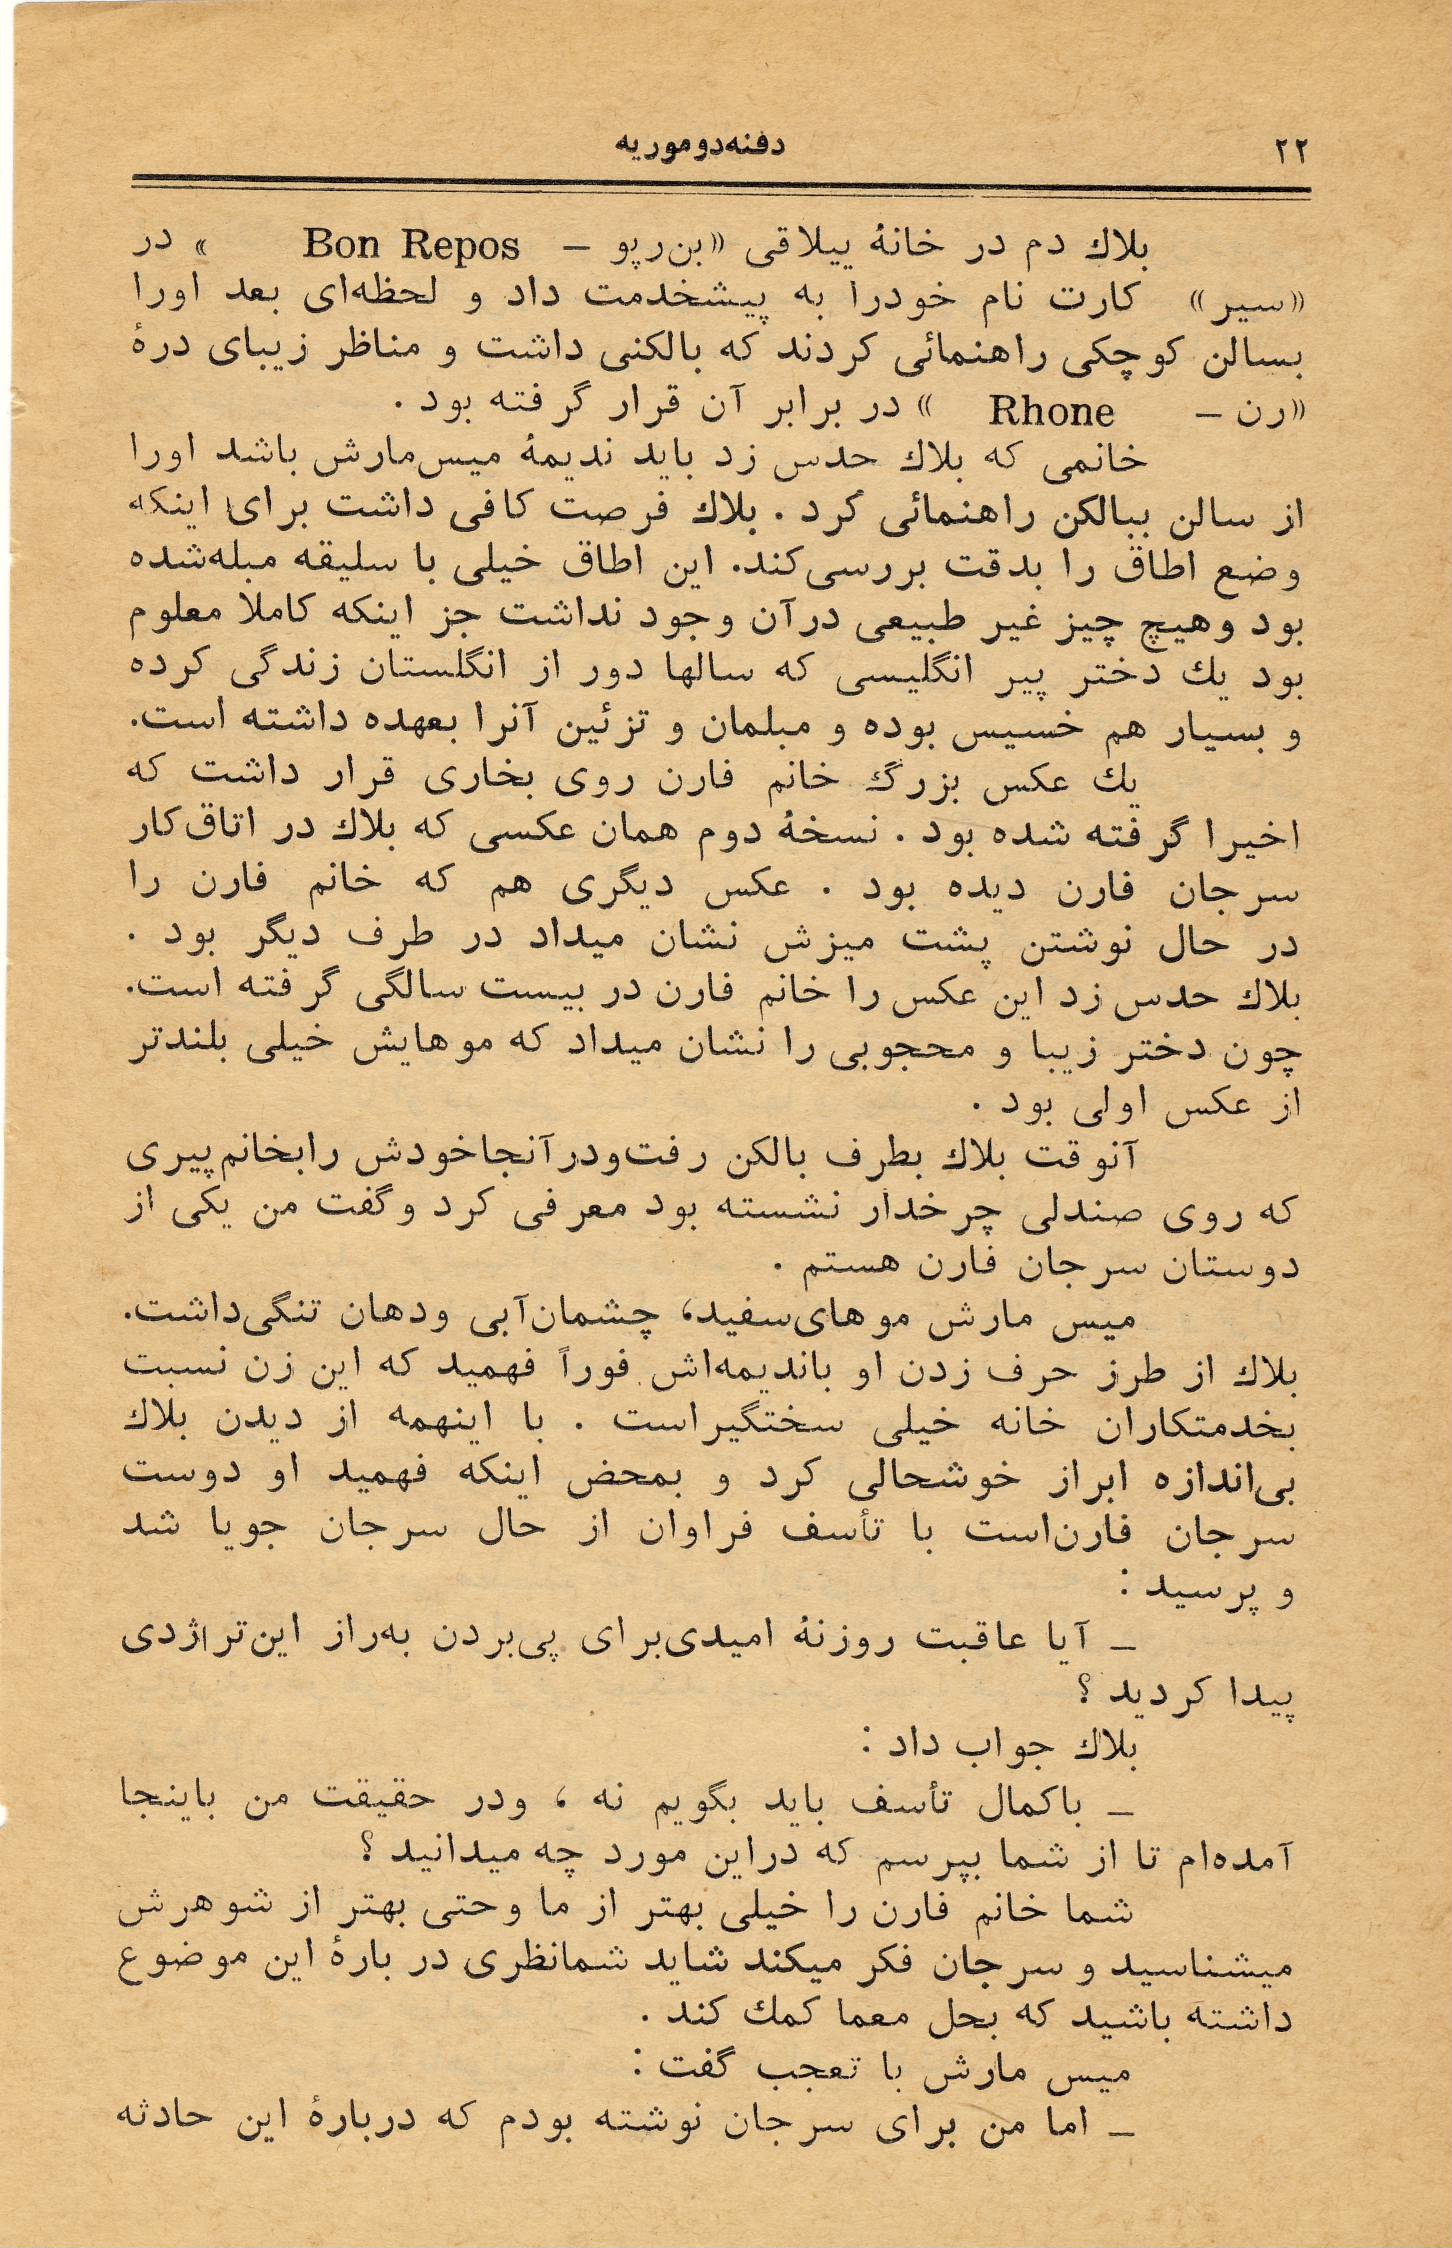 ۲۲ دفنه‌دوموریه
بلاك دم در خانهٔ ییلاقی «بن‌رپو – Bon Repos » در
«سیر» کارت نام خودرا به پیشخدمت داد و لحظه‌ای بعد اورا
بسالن کوچکی راهنمائی کردند که بالکنی داشت و مناظر زیبای درهٔ
«رن – Rhone » در برابر آن قرار گرفته بود .
خانمی که بلاك حدس زد باید ندیمهٔ میس‌مارش باشد اورا
از سالن ببالکن راهنمائی کرد . بلاك فرصت کافی داشت برای اینکه
وضع اطاق را بدقت بررسی‌کند. این اطاق خیلی با سلیقه مبله‌شده
بود وهیچ چیز غیر طبیعی درآن وجود نداشت جز اینکه کاملا معلوم
بود یك دختر پیر انگلیسی که سالها دور از انگلستان زندگی کرده
و بسیار هم خسیس بوده و مبلمان و تزئین آنرا بعهده داشته است.
یك عکس بزرگ خانم فارن روی بخاری قرار داشت که
اخیرا گرفته شده بود . نسخهٔ دوم همان عکسی که بلاك در اتاق‌کار
سرجان فارن دیده بود . عکس دیگری هم که خانم فارن را
در حال نوشتن پشت میزش نشان میداد در طرف دیگر بود .
بلاك حدس زد این عکس را خانم فارن در بیست سالگی گرفته است.
چون دختر زیبا و محجوبی را نشان میداد که موهایش خیلی بلندتر
از عکس اولی بود .
آنوقت بلاك بطرف بالکن رفت‌ودرآنجاخودش رابخانم‌پیری
که روی صندلی چرخدار نشسته بود معرفی کرد وگفت من یکی از
دوستان سرجان فارن هستم .
میس مارش موهای‌سفید، چشمان‌آبی ودهان تنگی‌داشت.
بلاك از طرز حرف زدن او باندیمه‌اش فوراً فهمید که این زن نسبت
بخدمتکاران خانه خیلی سختگیراست . با اینهمه از دیدن بلاك
بی‌اندازه ابراز خوشحالی کرد و بمحض اینکه فهمید او دوست
سرجان فارن‌است با تأسف فراوان از حال سرجان جویا شد
و پرسید :
– آیا عاقبت روزنهٔ امیدی‌برای پی‌بردن به‌راز این‌تراژدی
پیدا کردید ؟
بلاك جواب داد :
– باکمال تأسف باید بگویم نه ، ودر حقیقت من باینجا
آمده‌ام تا از شما بپرسم که دراین مورد چه میدانید ؟
شما خانم فارن را خیلی بهتر از ما وحتی بهتر از شوهرش
میشناسید و سرجان فکر میکند شاید شمانظری در بارهٔ این موضوع
داشته باشید که بحل معما کمك کند .
میس مارش با تعجب گفت :
– اما من برای سرجان نوشته بودم که دربارهٔ این حادثه